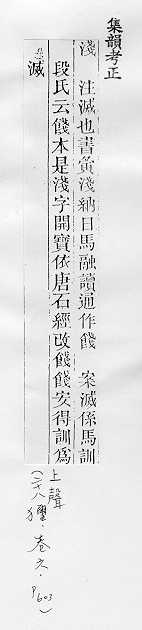 集韻考正
淺　注滅也書夤淺納日馬融讀通作餞　案滅係馬訓
段氏云餞本是淺字開寶依唐石經改餞餞安得訓爲
滅
上聲
(二十八獮．卷六．P603)